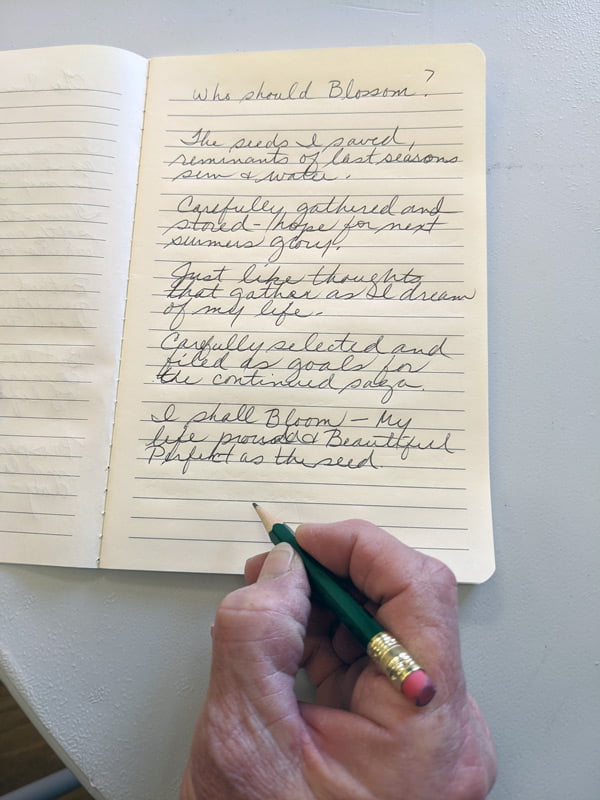 Who should Blossom?
The seeds I saved,
reminants of last seasons
sun & water.
Carefully gathered and
stored - hope for next
summers glory.
Just like thoughts
that gather as I dream
of my life.
Carefully selected and
filed as goals for
the continued saga.
I shall Bloom - My
life proud & Beautiful
Perfect as the seed.